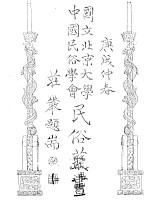 庚戌仲春
國立北京大學
中國民俗學會
民俗叢書
莊嚴題端